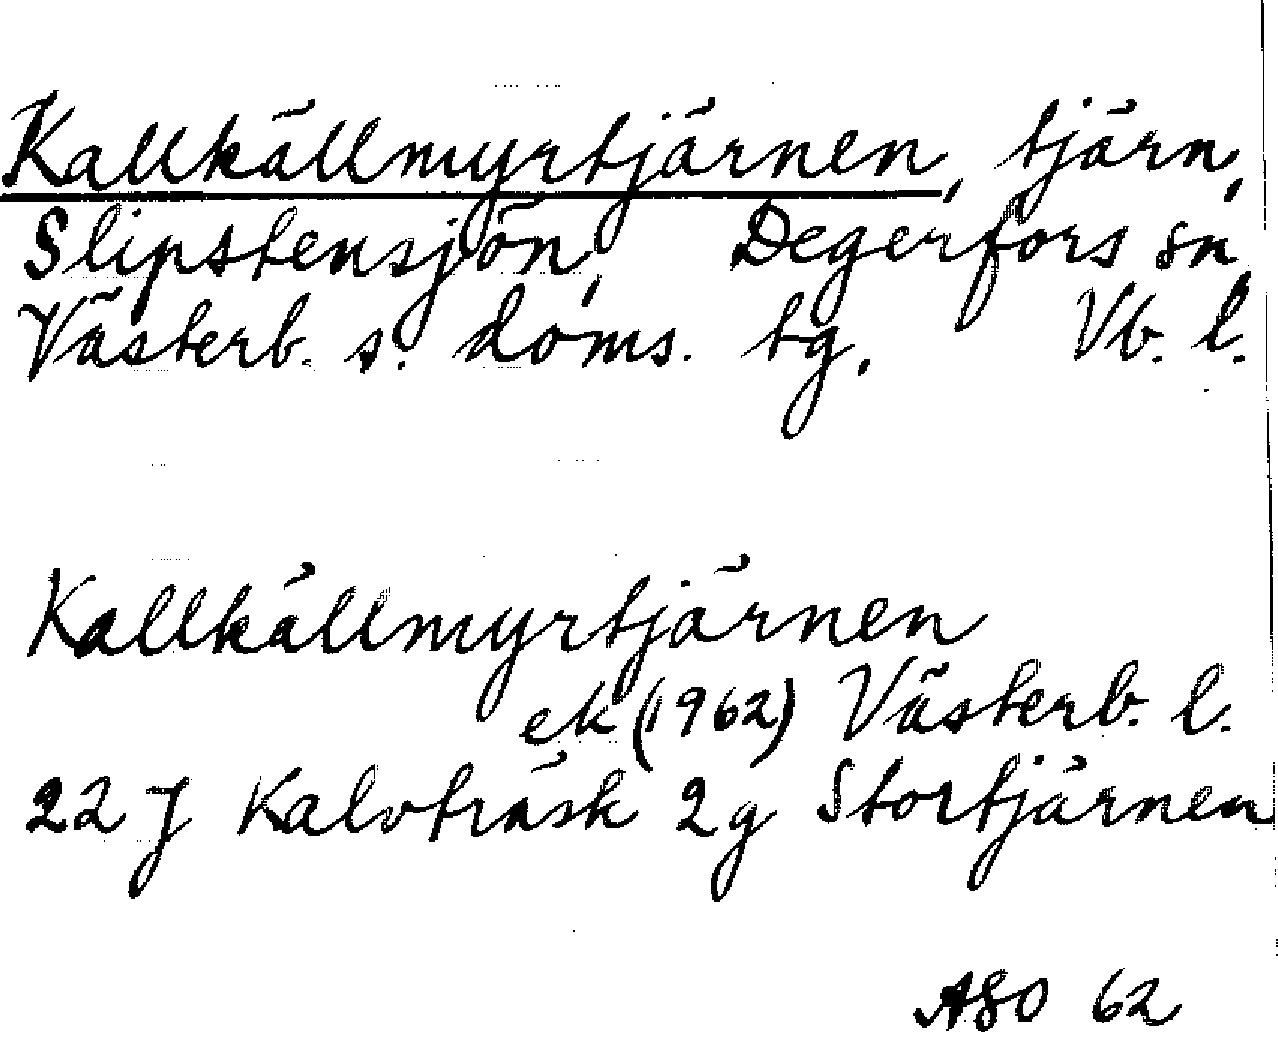 Kallkällmyrtjärnen, tjärn,
Slipstensjön, Degerfors sn,
Västerb. s. doms. tg. Vb. l.
Kallkällmyrtjärnen
ek (1962) Västerb. l.
22 J Kalvträsk 2g Stortjärnen
ASO 62